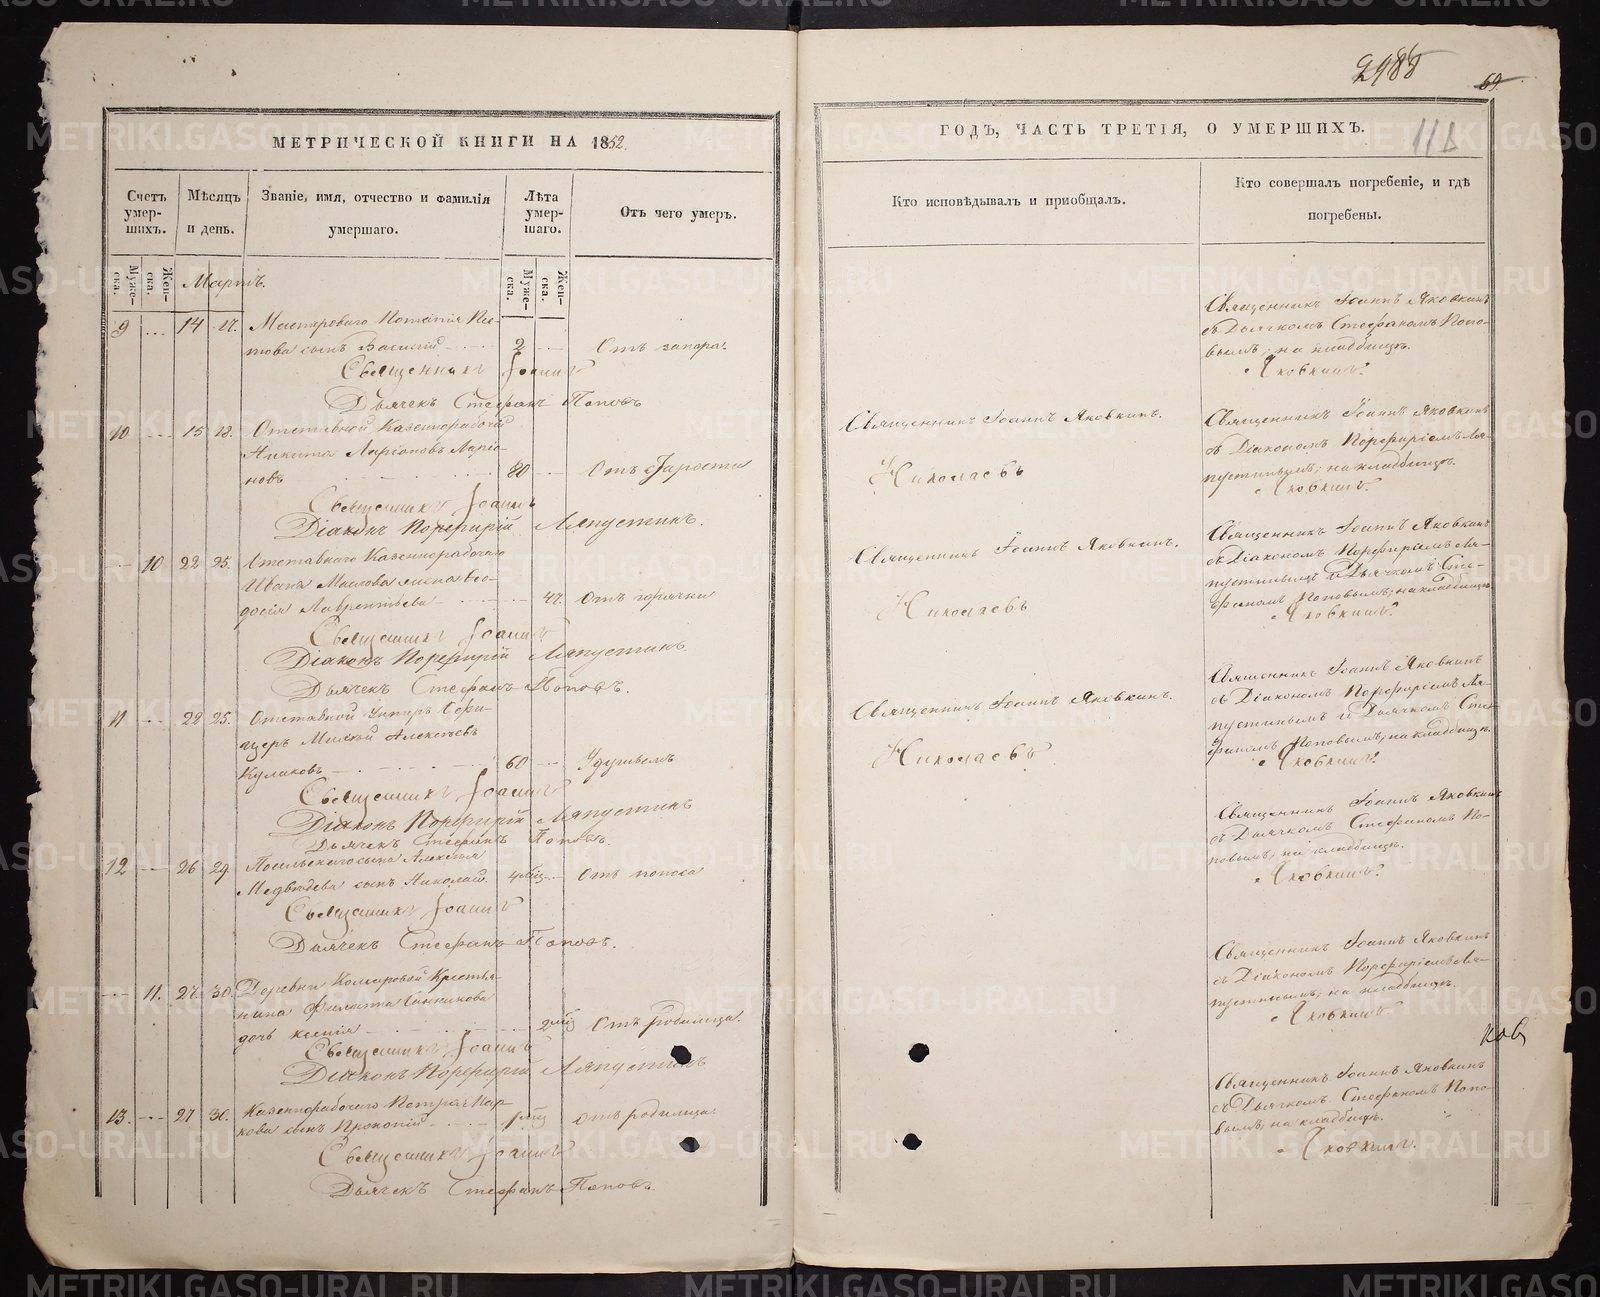 2988
69
11
МЕТРИЧЕСКОЙ КНИГИ НА 1852.
Счетъ умер-шихъ.
Мѣсяцъ и день.
Званіе, имя, отчество и фамилія умершаго.
Лѣта умер-шаго.
Отъ чего умеръ.
Муже-ска.
Жен-ска.
Муже-ска.
Жен-ска.
Мартъ.
9 ... 14 17. Мастероваго
това сынъ Василій 2 Отъ запора.
Священникъ Іоаннъ
Дьячекъ Стефанъ Поповъ
10 15 18. Отставной Казеннорабочій
Никита Ларіоновъ Ларіо-
новъ 80 Отъ старости
Священникъ Іоаннъ
Діаконъ Порфирій Ляпустинъ.
10 22 25. Отставнаго Казеннорабочаго
Ивана жена Ѳео-
досія Лаврентьева 47. Отъ горячки
Священникъ Іоаннъ
Діаконъ Порфирій Ляпустинъ.
Дьячекъ Стефанъ Поповъ.
11 22 25. Отставной Унтеръ Офи-
церъ Алексѣевъ
Куликовъ 60 Удушьемъ
Священникъ Іоаннъ
Діаконъ Порфирій Ляпустинъ
Дьячекъ Стефанъ Поповъ.
12 26 29. сына Алексѣя
Медвѣдева сынъ Николай. 4 мѣс Отъ поноса
Священникъ Іоаннъ
Дьячекъ Стефанъ Поповъ.
11. 27. 30 Деревни Комаровой Крестья-
нина Филиппа
дочь Ксенія 2 мѣс Отъ родимца.
Священникъ Іоаннъ
Діаконъ Порфирій Ляпустинъ
13. 27 30. Казеннорабочаго Петра Мар-
кова сынъ Прокопій 1 мѣс отъ родимца.
Священникъ Іоаннъ
Дьячекъ Стефанъ Поповъ.
ГОДЪ, ЧАСТЬ ТРЕТІЯ, О УМЕРШИХЪ.
Кто исповѣдывалъ и пріобщалъ.
Кто совершалъ погребеніе, и гдѣ
погребены.
Священникъ Іоаннъ Яковкинъ
съ Дьячкомъ Стефаномъ Попо-
вымъ; на кладбищѣ.
Яковкинъ.
Священникъ Іоаннъ Яковкинъ.
Николаевъ
Священникъ Іоаннъ Яковкинъ
съ Діакономъ Порфиріемъ Ля-
пустинымъ; на кладбищѣ.
Яковкинъ.
Священникъ Іоаннъ Яковкинъ.
Николаевъ
Священникъ Іоаннъ Яковкинъ
съ Діакономъ Порфиріемъ Ля-
пустинымъ и Дьячкомъ Сте-
фаномъ Поповымъ; на кладбищѣ.
Яковкинъ.
Священникъ Іоаннъ Яковкинъ.
Николаевъ
Священникъ Іоаннъ Яковкинъ
съ Діакономъ Порфиріемъ Ля-
пустинымъ и Дьячкомъ Сте-
фаномъ Поповымъ; на кладбищѣ.
Яковкинъ.
Священникъ Іоаннъ Яковкинъ
съ Дьячкомъ Стефаномъ По-
повымъ; на кладбищѣ.
Яковкинъ.
Священникъ Іоаннъ Яковкинъ
съ Діакономъ Порфиріемъ Ля-
пустинымъ; на кладбищѣ.
Яковкинъ
ков
Священникъ Іоаннъ Яковкинъ
съ Дьячкомъ Стефаномъ Попо-
вымъ, на кладбищѣ.
Яковкинъ.
METRIKI.GASO-URAL.RU